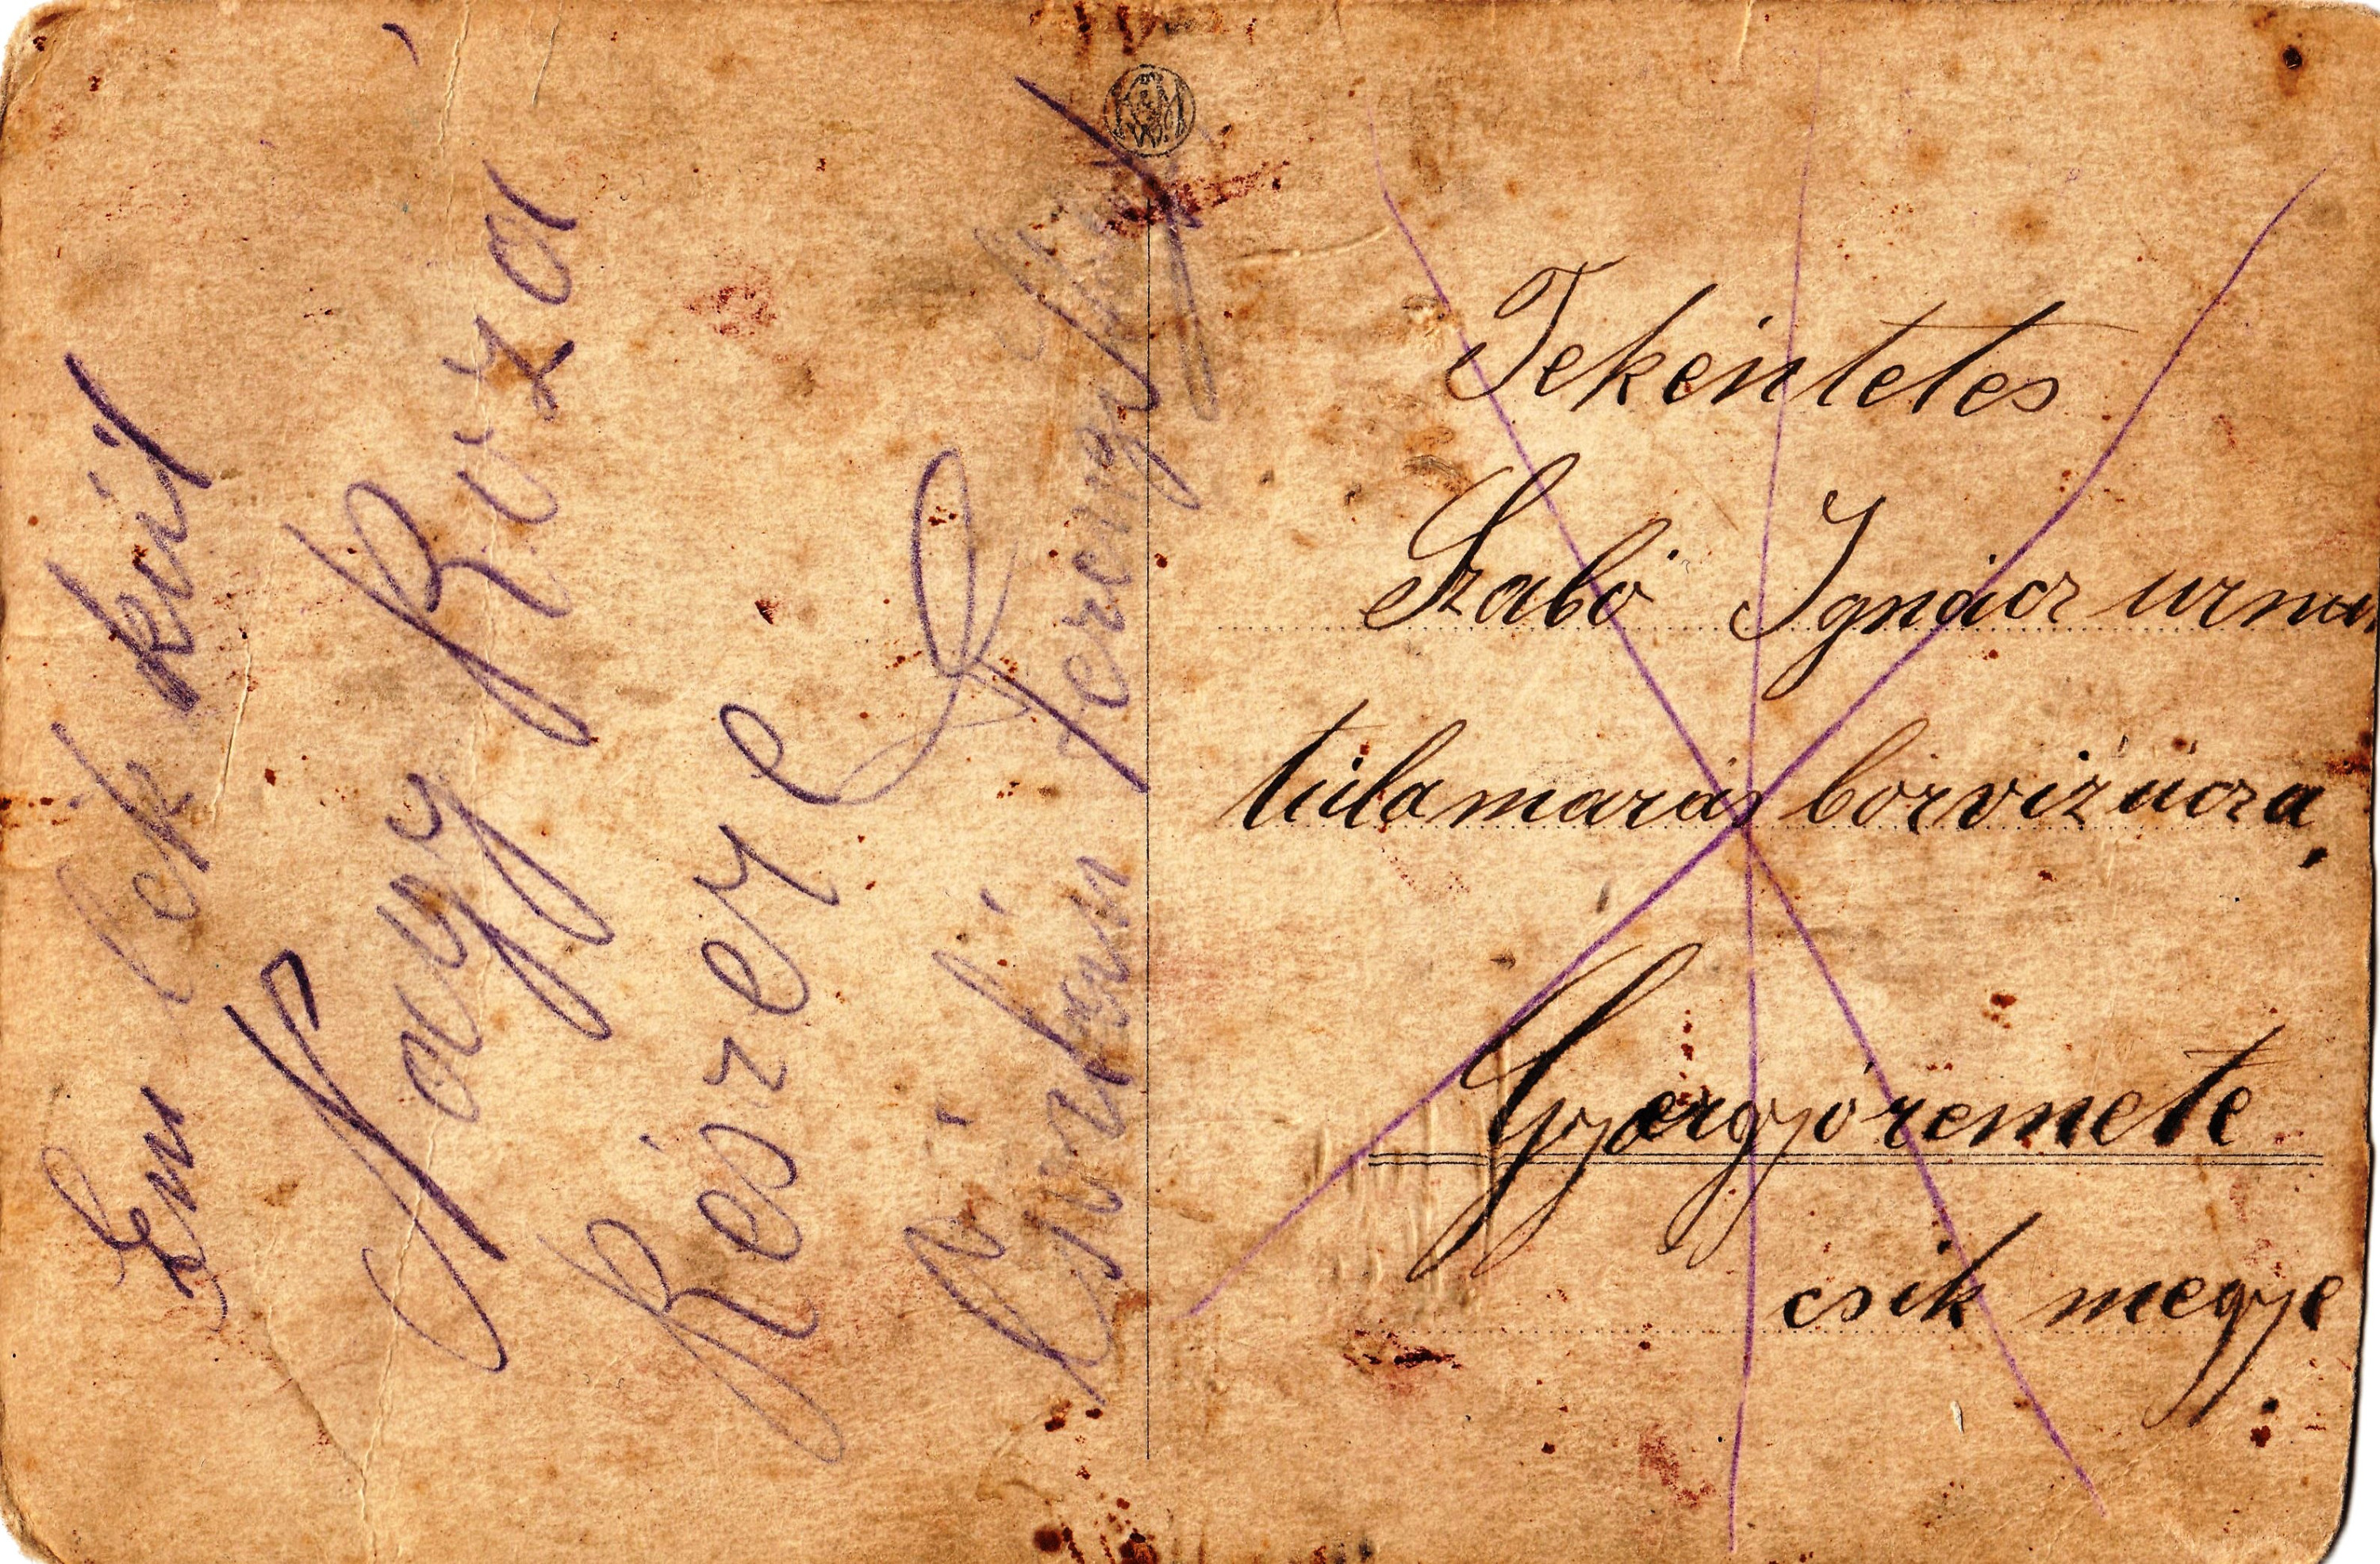 Em lek kűl
Nagy Róza
Részer
Ferencz
Tekéntetes
Szabó Ignácz urnak
túlamarás borviz ucza,
Gyergyóremete
csik megye